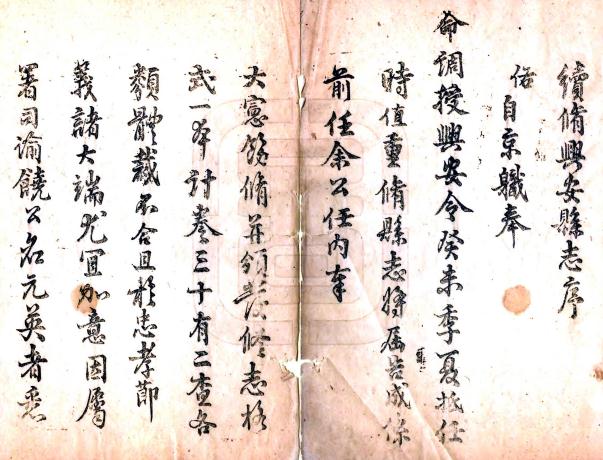 續脩興安縣志序
佑自京職奉
命調授興安令癸未季夏抵任
時值重脩縣志將届告成係
前任余公任内奉
大憲飭脩并領發修志格
式一本計卷三十有二查各
類體裁不合且於忠孝節
義諸大端尤宜加意因屬
署司諭饒公名元英者悉